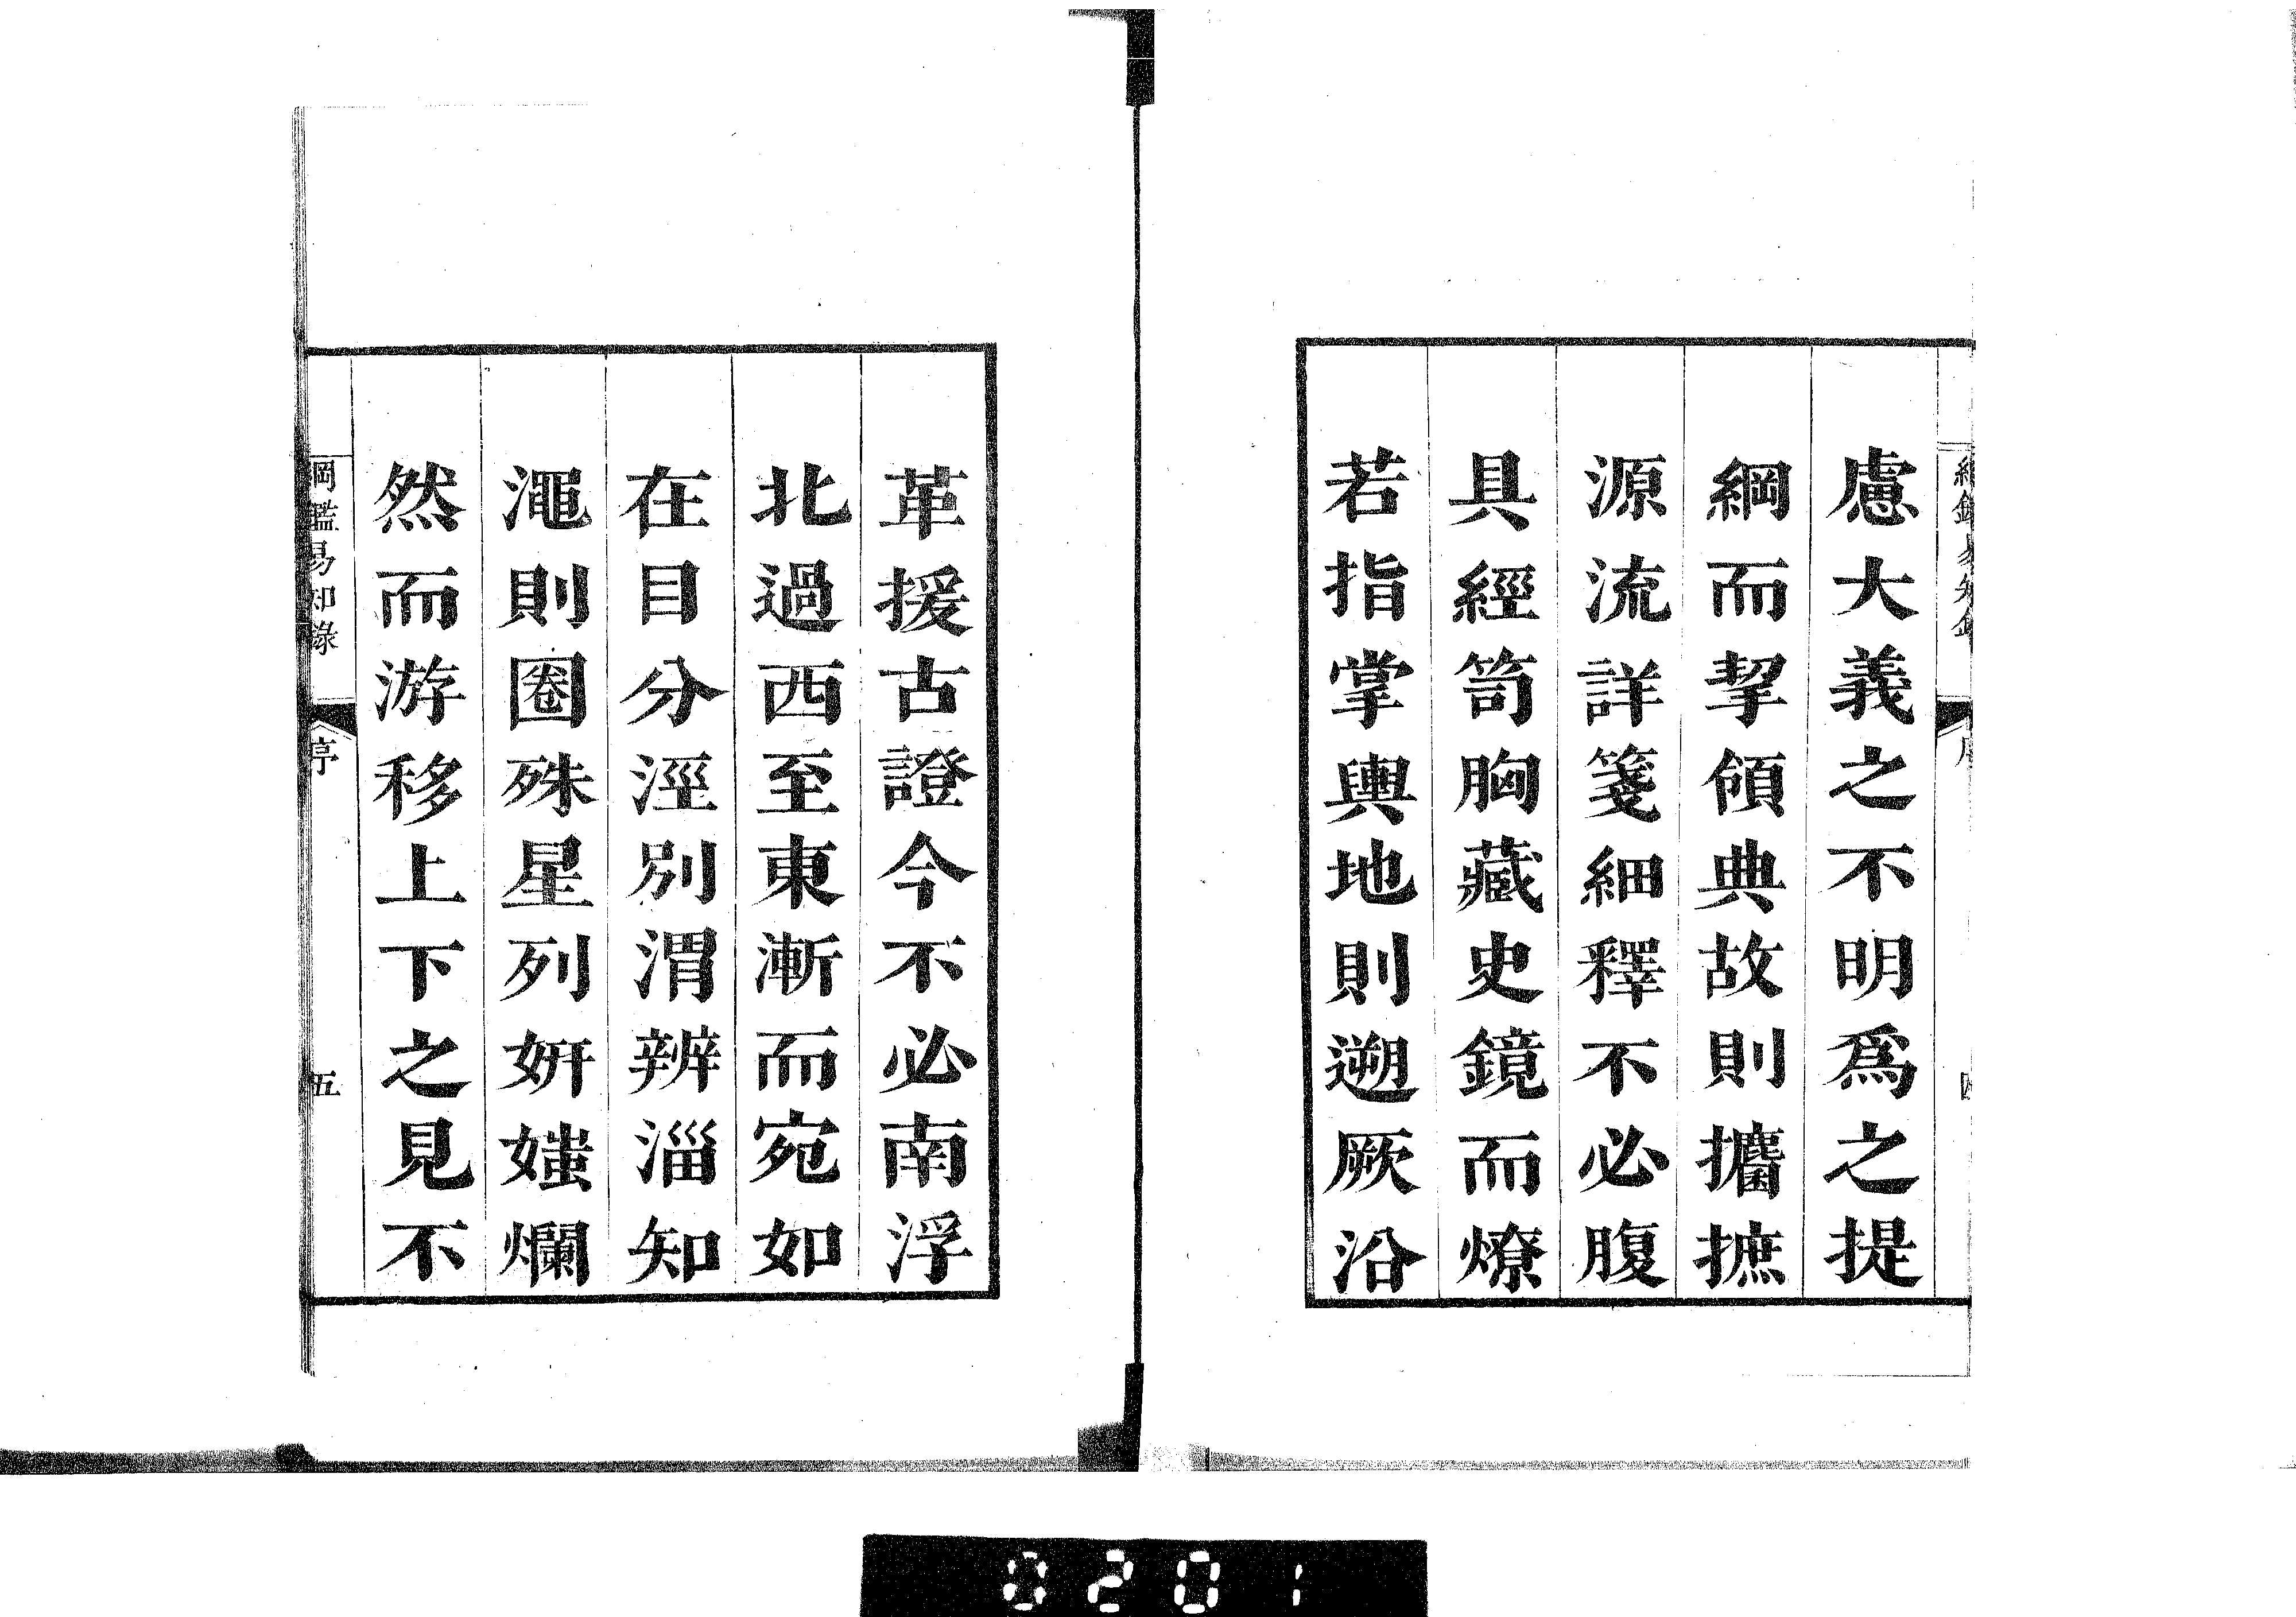 慮大義之不明爲之提
綱而挈領典故則攟摭
源流詳箋細釋不必腹
具經笥胸藏史鏡而燎
若指掌輿地則遡厥沿
革援古證今不必南浮
北過西至東漸而宛如
在目分涇別渭辨淄知
澠則圈殊星列妍媸爛
然而游移上下之見不
綱鑑易知錄
序
五
0201